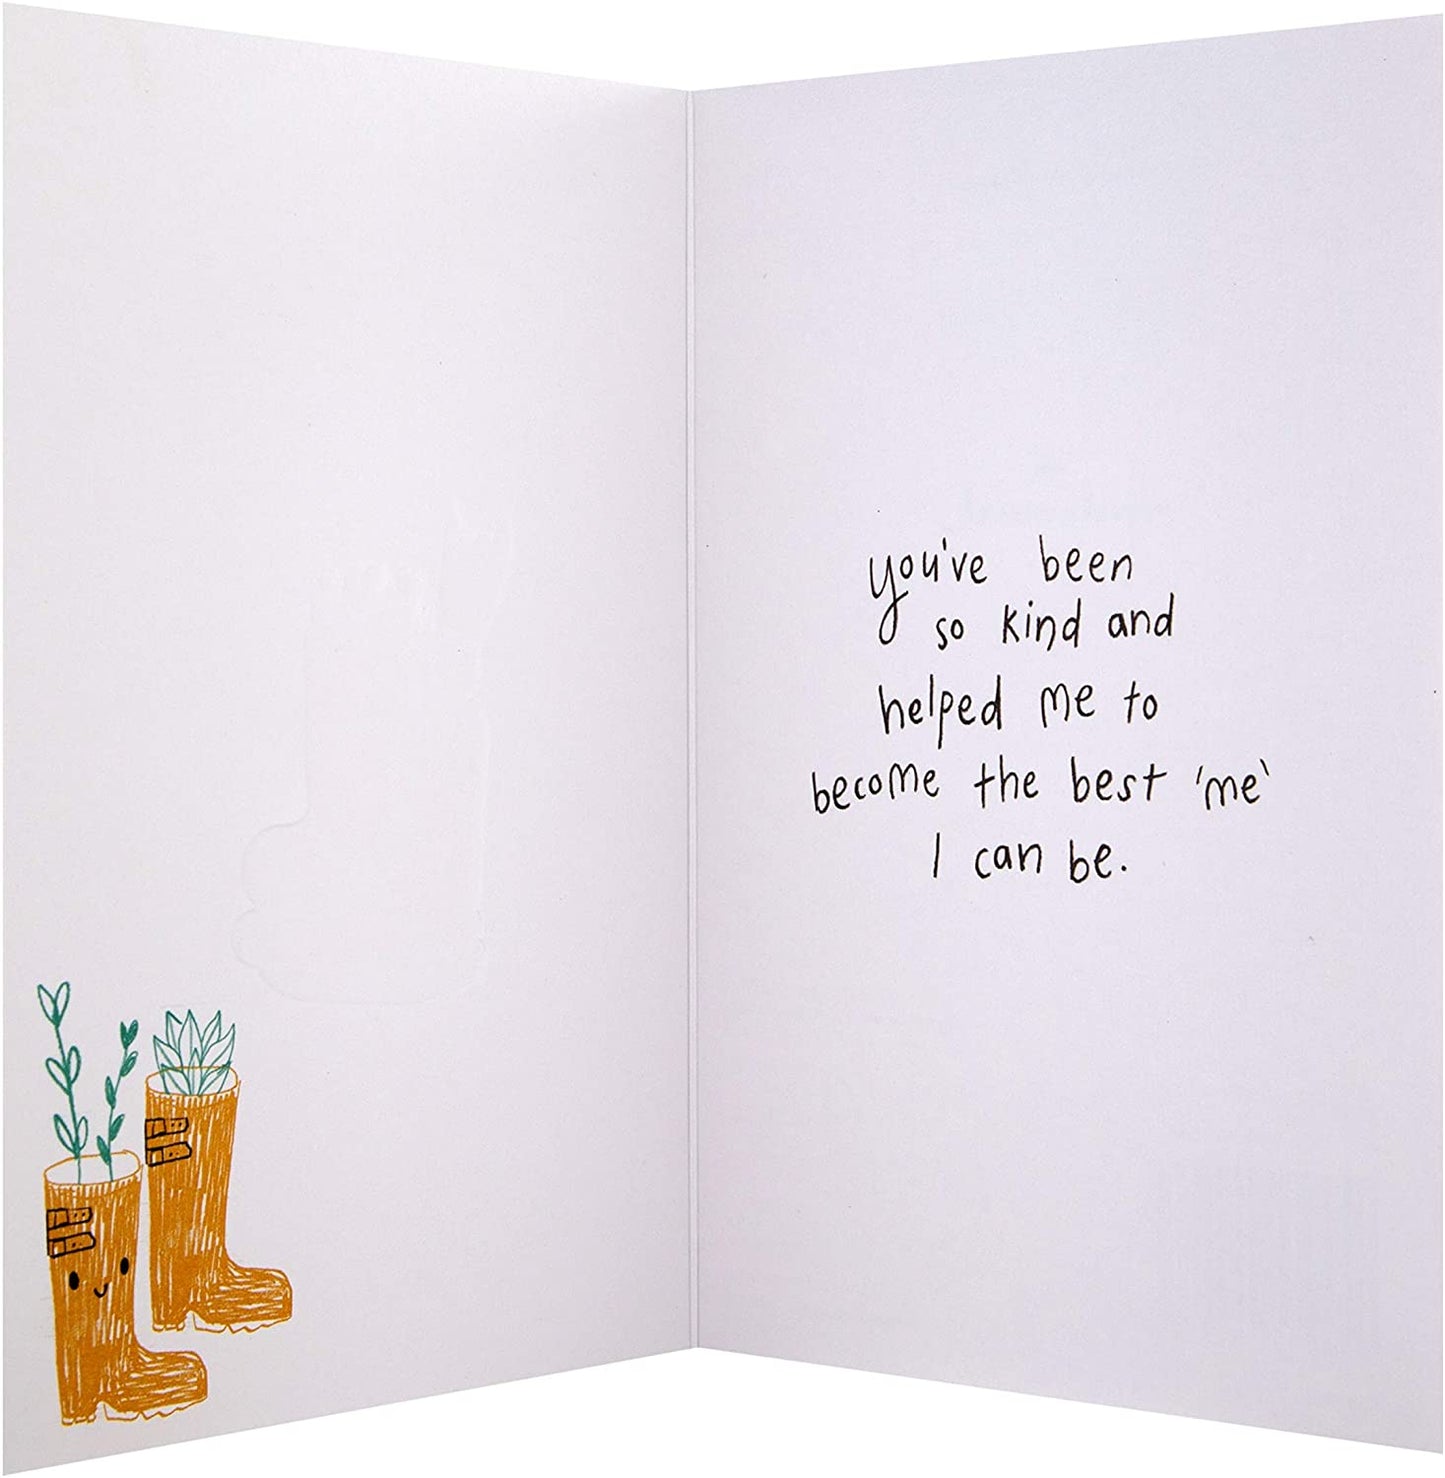 you've been
so kind and
helped me to
become the best 'me'
I can be.